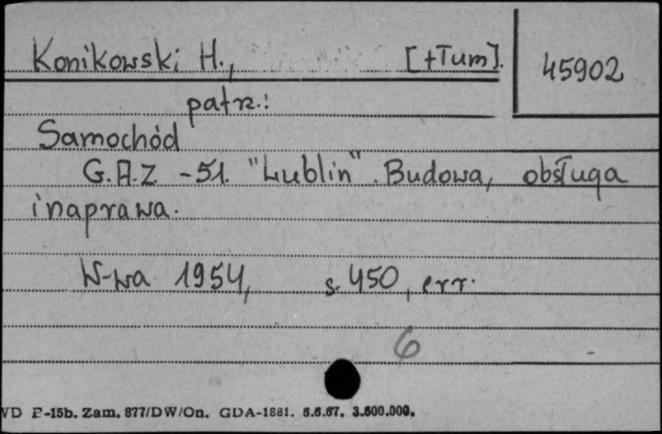 Konikowski H., [+Tum].
45902
patrz.:
Samochód
G.A.Z -51. "Lublin". Budowa, obsługa
i naprawa.
W-wa 1954, s. 450, err.
6
VD P-15b. Zam. 877/DW/On. GDA-1881. 6.6.67. 3.600.000.